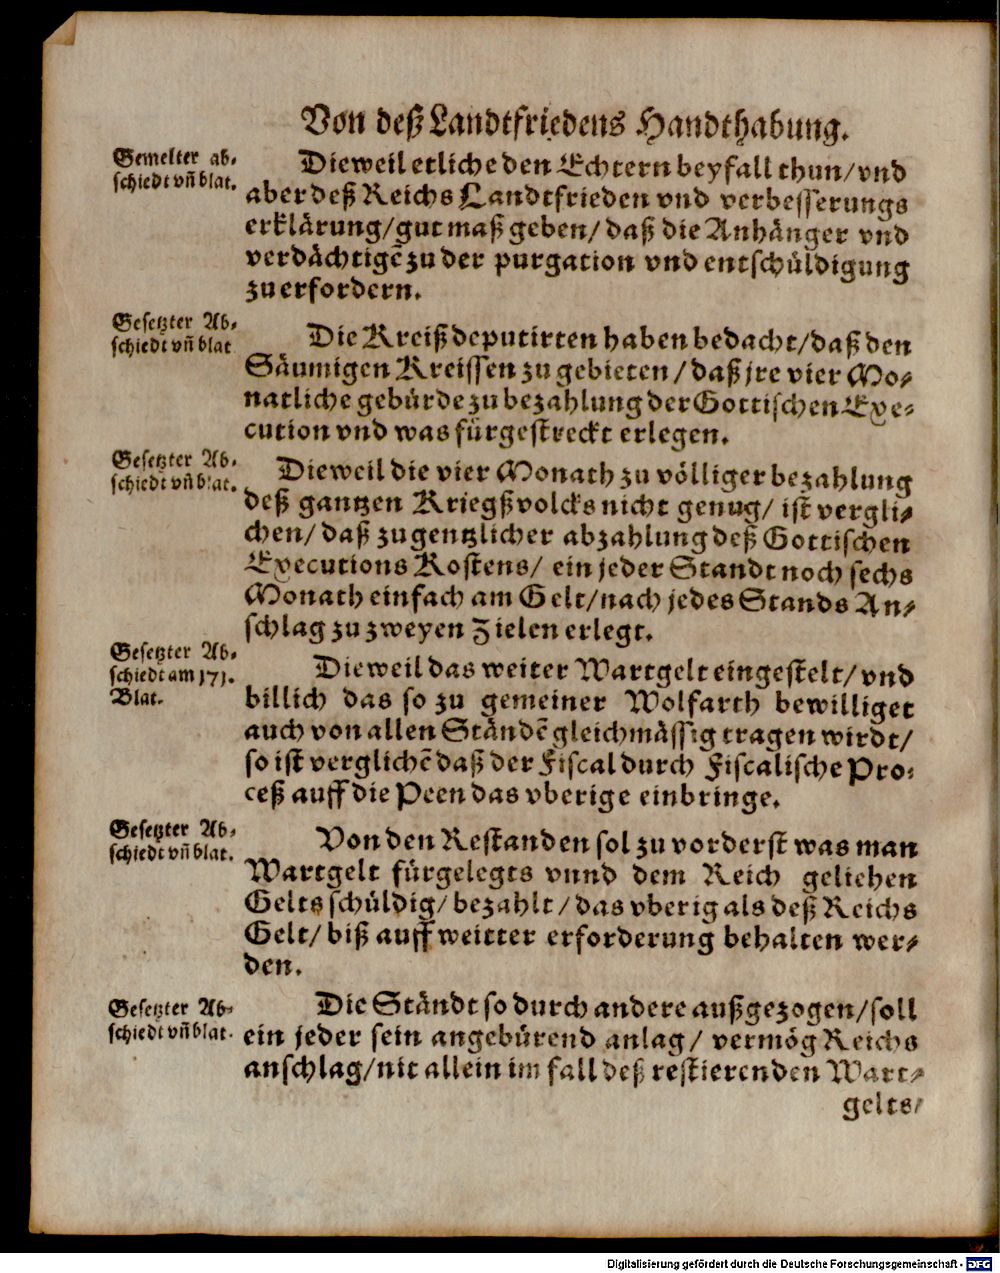 Von deß Landtfriedens Handthabung.
Gemelter ab-
schiedt vñ blat.
Dieweil etliche den Echtern beyfall thun/ vnd
aber deß Reichs Landtfrieden vnd verbesserungs
erklärung/ gut maß geben/ daß die Anhänger vnd
verdächtigẽ zu der purgation vnd entschüldigung
zuerfordern.
Gesetzter Ab-
schiedt vñ blat
Die Kreißdeputirten haben bedacht/ daß den
Säumigen Kreissen zu gebieten / daß jre vier Mo-
natliche gebürde zu bezahlung der Gottischen Exe-
cution vnd was fürgestreckt erlegen.
Gesetzter Ab-
schiedt vñ blat.
Dieweil die vier Monath zu völliger bezahlung
deß gantzen Kriegßvolcks nicht genug/ ist vergli-
chen/ daß zu gentzlicher abzahlung deß Gottischen
Executions Kostens/ ein jeder Standt noch sechs
Monath einfach am Gelt/ nach jedes Stands An-
schlag zu zweyen Zielen erlegt.
Gesetzter Ab-
schiedt am 171.
Blat.
Dieweil das weiter Wartgelt eingestelt/ vnd
billich das so zu gemeiner Wolfarth bewilliget
auch von allen Ständẽ gleichmässig tragen wirdt/
so ist verglichẽ daß der Fiscal durch Fiscalische Pro-
ceß auff die Peen das vberige einbringe.
Gesetzter Ab-
schiedt vñ blat.
Von den Restanden sol zu vorderst was man
Wartgelt fürgelegts vnnd dem Reich geliehen
Gelts schüldig/ bezahlt / das vberig als deß Reichs
Gelt/ biß auff weitter erforderung behalten wer-
den.
Gesetzter Ab-
schiedt vñ blat.
Die Ständt so durch andere außgezogen/ soll
ein jeder sein angebürend anlag / vermög Reichs
anschlag/ nit allein im fall deß restierenden Wart-
gelts/
Digitalisierung gefördert durch die Deutsche Forschungsgemeinschaft - DFG